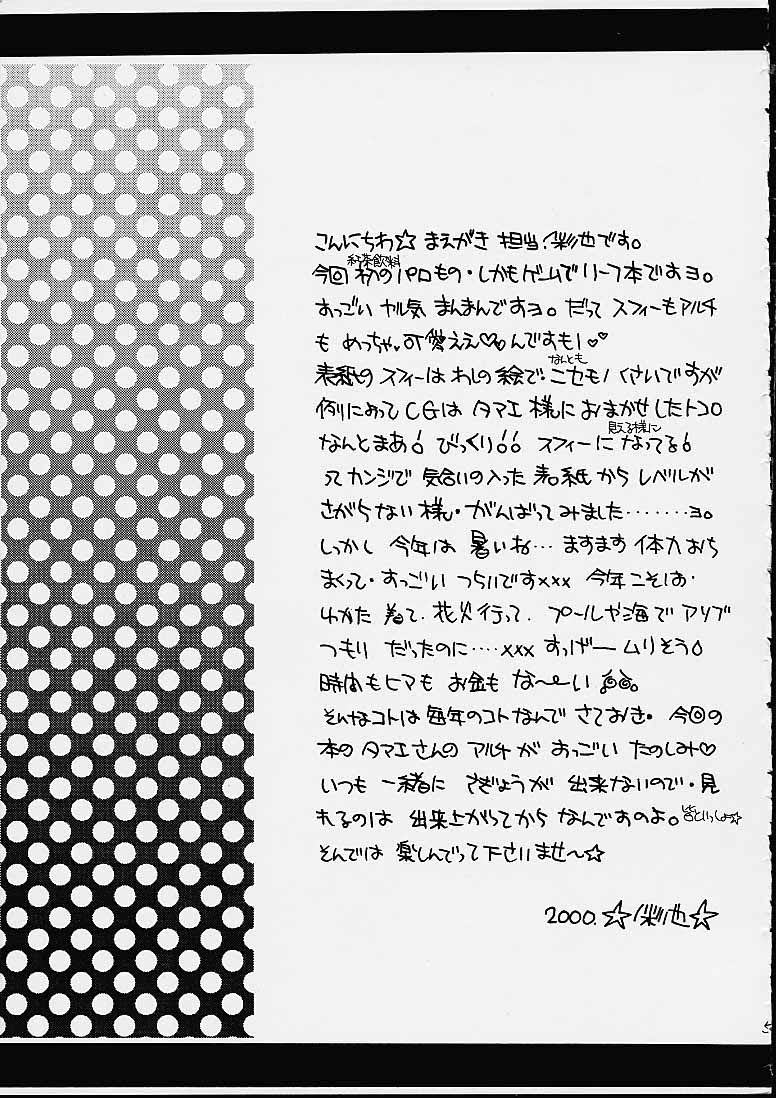 こんにちわ☆ まえがき 担当、彩也です。
紅茶飲料
今回 初の パロもの・しかもゲームでリーフ本ですヨ。
すっごい ヤル気 まんまんですヨ。だって スフィーもアルチ
も めっちゃ、可愛ええ♡♡んですもん♡♡
なんとも
表紙の スフィーは わしの絵で・ニセモノくさいですが
例によって CGは タマエ様に おまかせしたトコロ
見える様に
なんとまあ! びっくり!! スフィーに なってる!
ってカンジで 気合いの入った 表紙から レベルが
さがらない様・がんばってみました………ヨ。
しっかし 今年は 暑いね… ますます 体力 おち
まくって・すっごい つらいですxxx 今年こそは・
ゆかた 着て、花火行って、プールや海で アソブ
つもり だったのに‥‥xxx すっげー ムリそう
時間も ヒマも お金も な〜い
そんなコトは 毎年のコトなんで さておき・ 今回の
本の タマエさんの アルチが すっごい たのしみ♡
いつも 一緒に さぎょうが 出来ないので・見
れるのは 出来上がってから なんですのよ。
そんでは 楽しんでって下さいませ〜☆
2000. ☆彩也☆